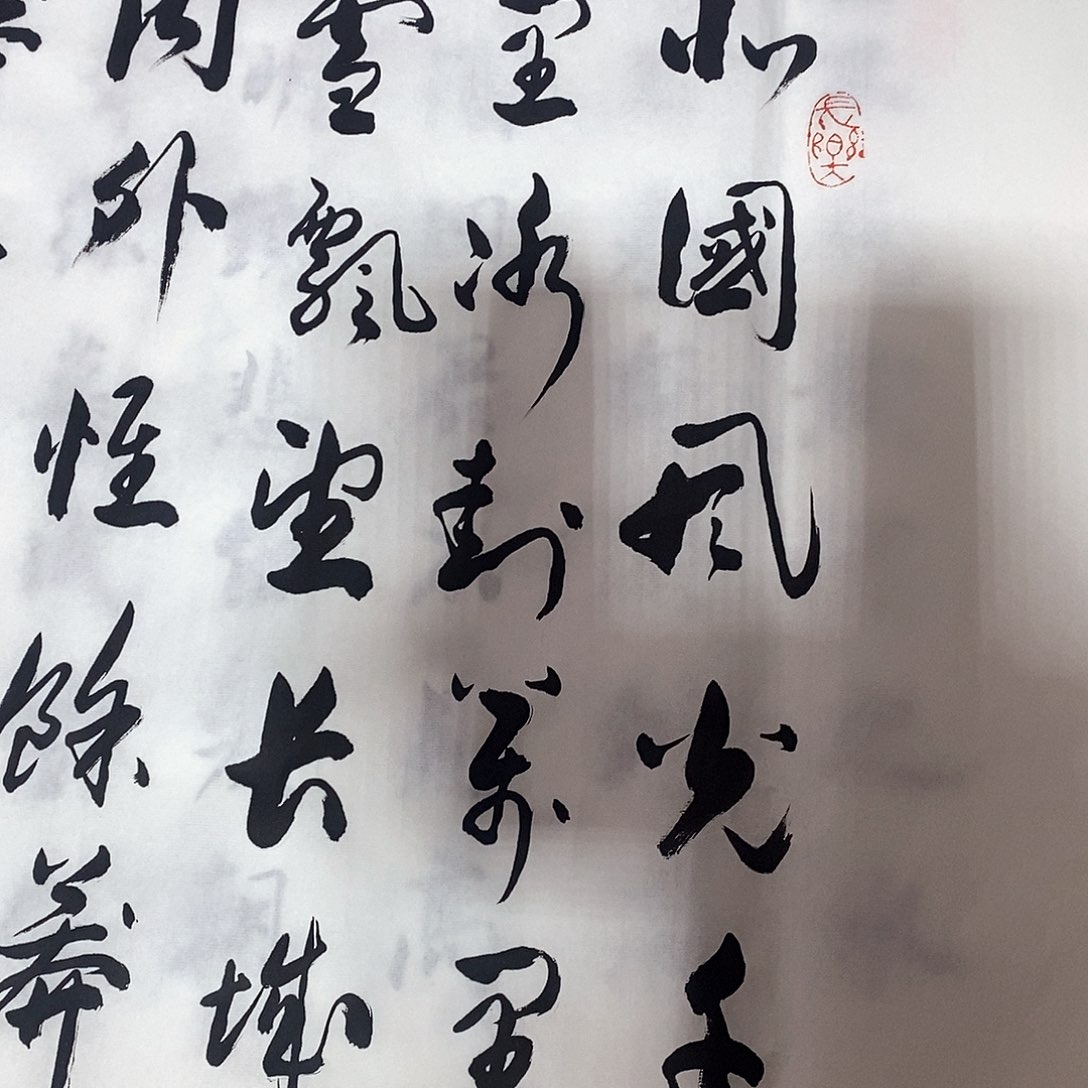 北國風光千
里冰封萬里
雪飄望长城
内外惟餘莽